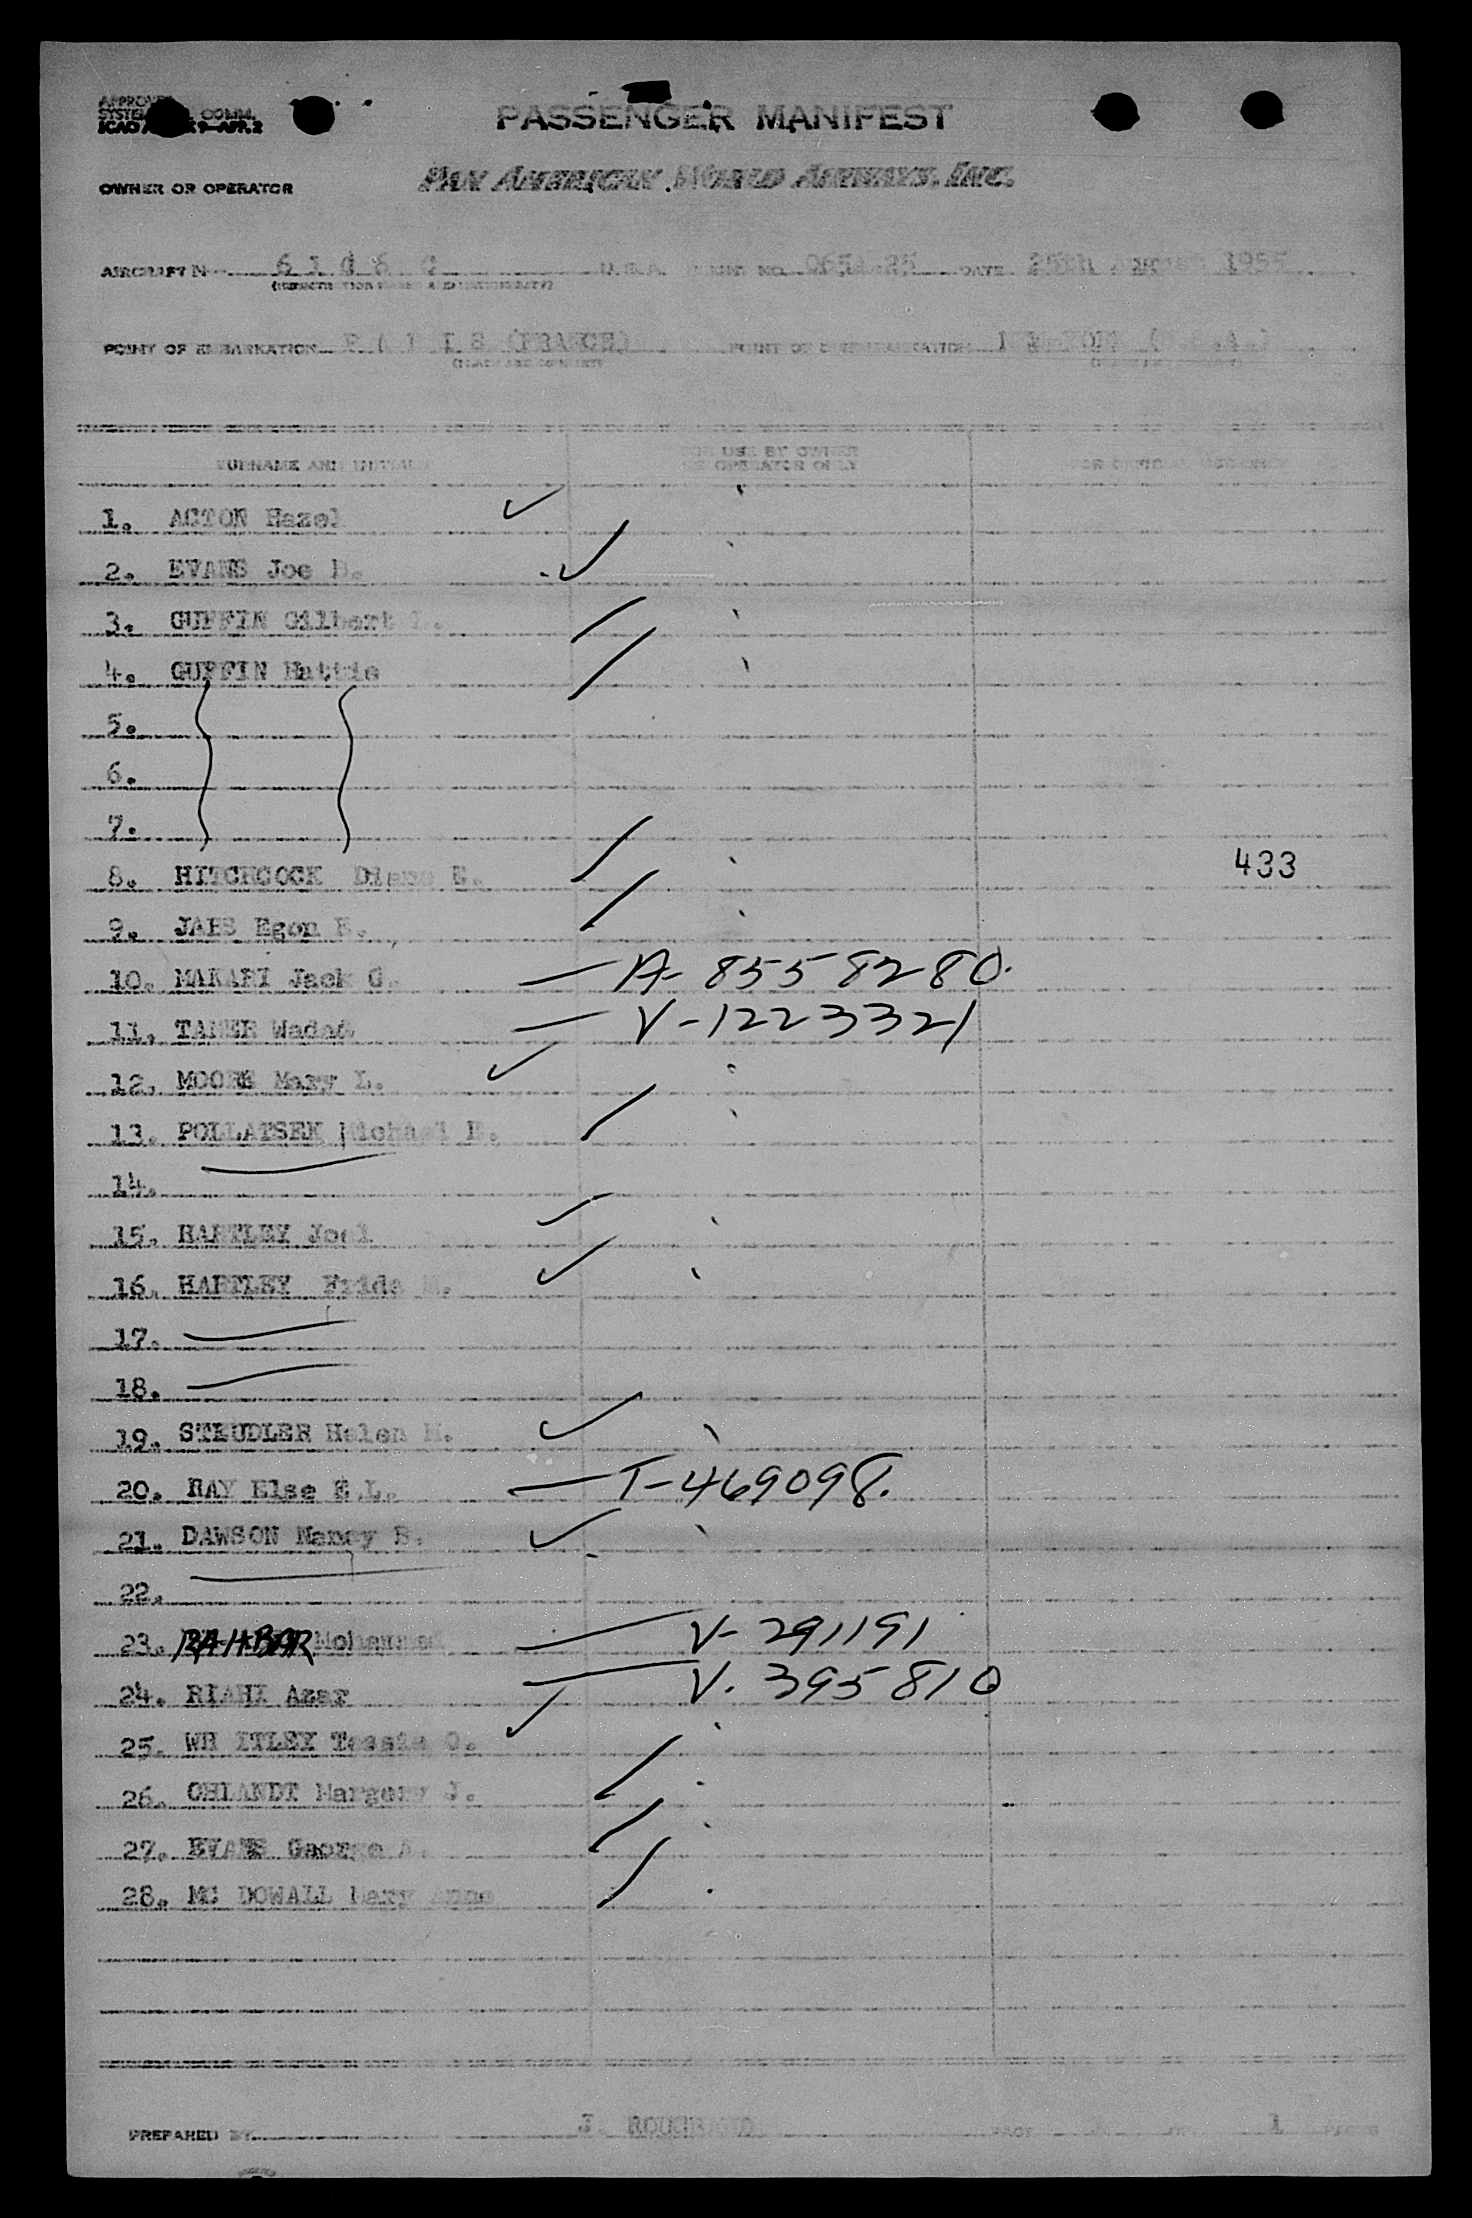 PASSENGER MANIFEST
OWNER OR OPERATOR PAN AMERICAN WORLD AIRWAYS, INC.
AIRCRAFT U.S.A. DATE 25th August 1955
POINT OF EMBARKATION (FRANCE) POINT OF (U.S.A.)
SURNAME AND INITIALS FOR USE BY OWNER OR OPERATOR ONLY
1. ACTON Hazel
2. EVANS Joe
3. GUFFIN Gilbert
4. GUFFIN Hattie
5.
6.
7.
8. HITCHCOCK Diane E. 433
9. Egon
10. MAKARI Jack G. A-8558280.
11. TAMER Wadad V-1223321
12. MOORE Mary L.
13. POLLATSEK Michael
14.
15. HARTLEY Joel
16. HARTLEY Frida
17.
18.
19. STEUDLER Helen
20. RAY Else E.L. T-469098.
21. DAWSON Nancy B.
22.
23. RAHBAR Mohammad V-291191
24. RIAHI Azar V. 395810
25. WH ITLEY Tessie O.
26. OHLANDT Margery J.
27. EVANS George A.
28. MC DOWALL Mary Anne
PREPARED BY J. 1